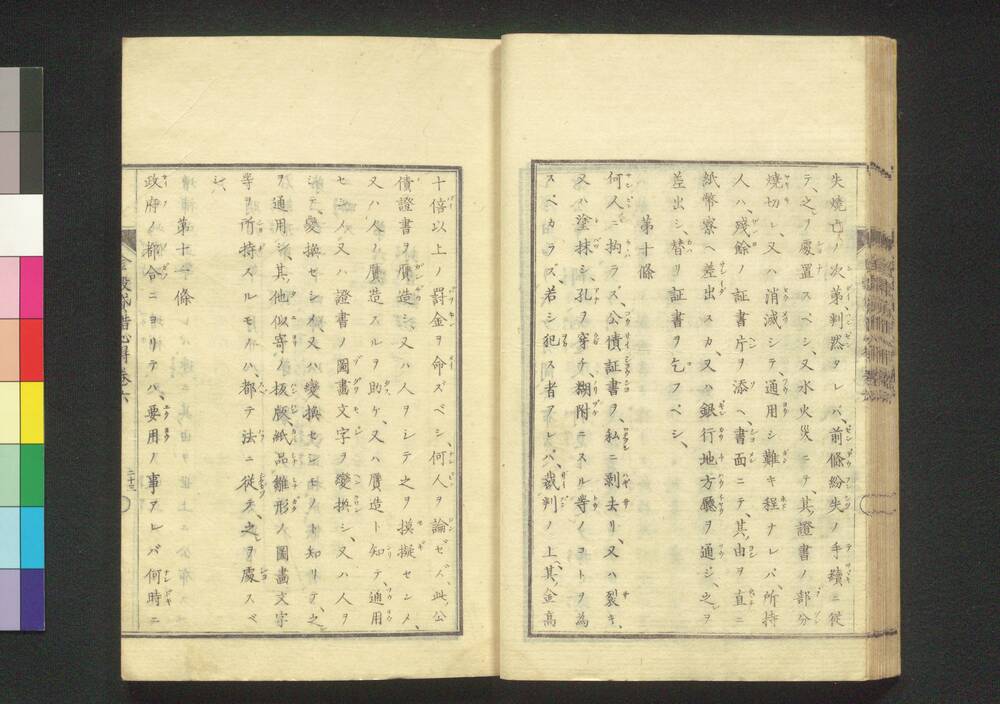 失燒亡ノ次第判然タレバ、前條紛失ノ手續ニ従
テ、之ヲ處置スベシ、又水火災ニテ、其證書ノ部分
燒切レ、又ハ消滅シテ、通用シ難キ程ナレバ、所持
人ハ、殘餘ノ証書片ヲ添ヘ、書面ニテ、其由ヲ直ニ
紙幣寮ヘ差出スカ、又ハ銀行地方廳ヲ通シ、之ヲ
差出シ、替リ証書ヲ乞フベシ、
第十條
何人ニ拘ラズ、公債証書ヲ、私ニ剥去リ、又ハ裂キ、
又ハ塗抹シ、孔ヲ穿チ、糊附テスル等ノヿトヲ為
スベカラズ、若シ犯ス者アレバ、裁判ノ上、其金高
十倍以上ノ罰金ヲ命ズベシ、何人ヲ論ゼズ、此公
債證書ヲ贋造シ、又ハ人ヲシテ之ヲ摸擬セシメ、
又ハ人ノ贋造スルヲ助ケ、又ハ贋造ト知テ、通用
セシメ、又ハ證書ノ圖畫文字ヲ變換シ、又ハ人ヲ
シテ、變換セシメ、又ハ變換セシモノト知リテ、之
ヲ通用シ、其他似寄ノ板、紙品雛形、圖畫文字
等ヲ所持スルモノハ、都テ法ニ従テ、之ヲ處スベ
シ、
第十一條
政府ノ都合ニヨリテハ、要用ノ事アレバ何時ニ
卷六
二十三